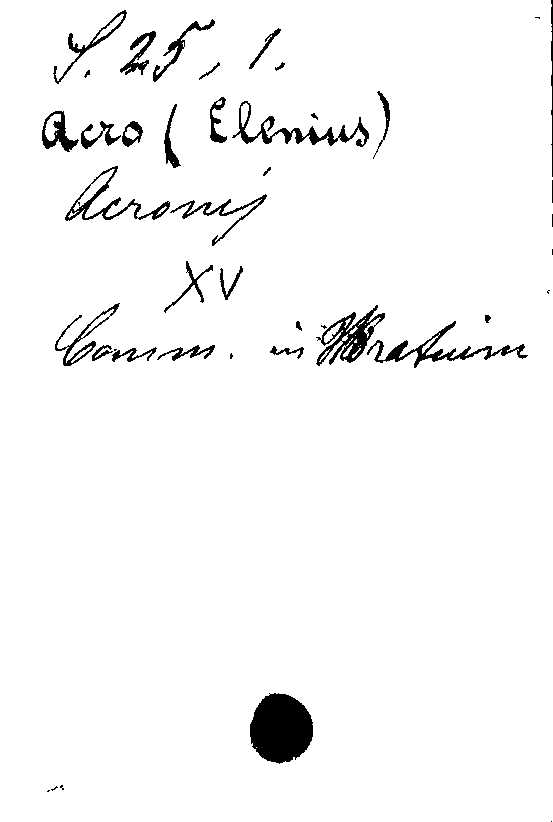 S. 25, 1.
Acro (Elenius)
Acronij
XV
Comm. in Horatium